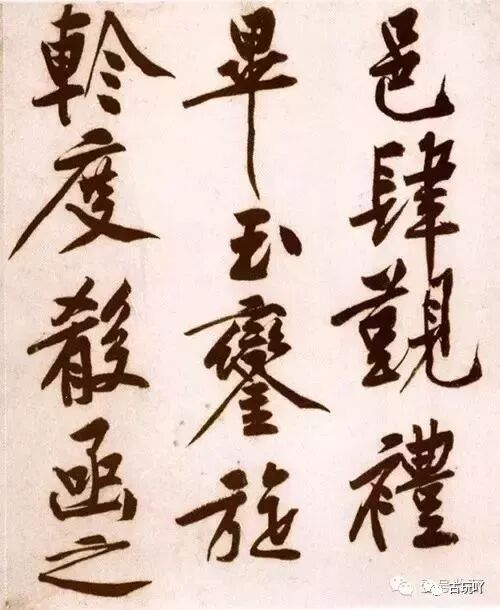 邑肆覲禮
畢玉鑾旋
軫度殽函之
古玩吖